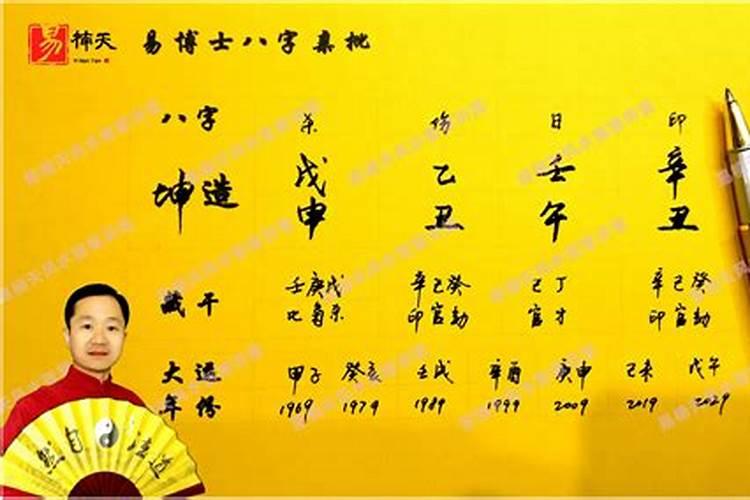 易 楠天 易博士八字集批
Yi Nan Tian
八字 杀 伤 日 印
坤造 戊申 乙丑 壬午 辛丑
藏干 壬庚戊 辛己癸 己丁 辛己癸
比枭杀 印官劫 官才 印官劫
大运 甲子 癸亥 壬戌 辛酉 庚申 己未 戊午
年份 1969 1979 1989 1999 2009 2019 2029
然自法道